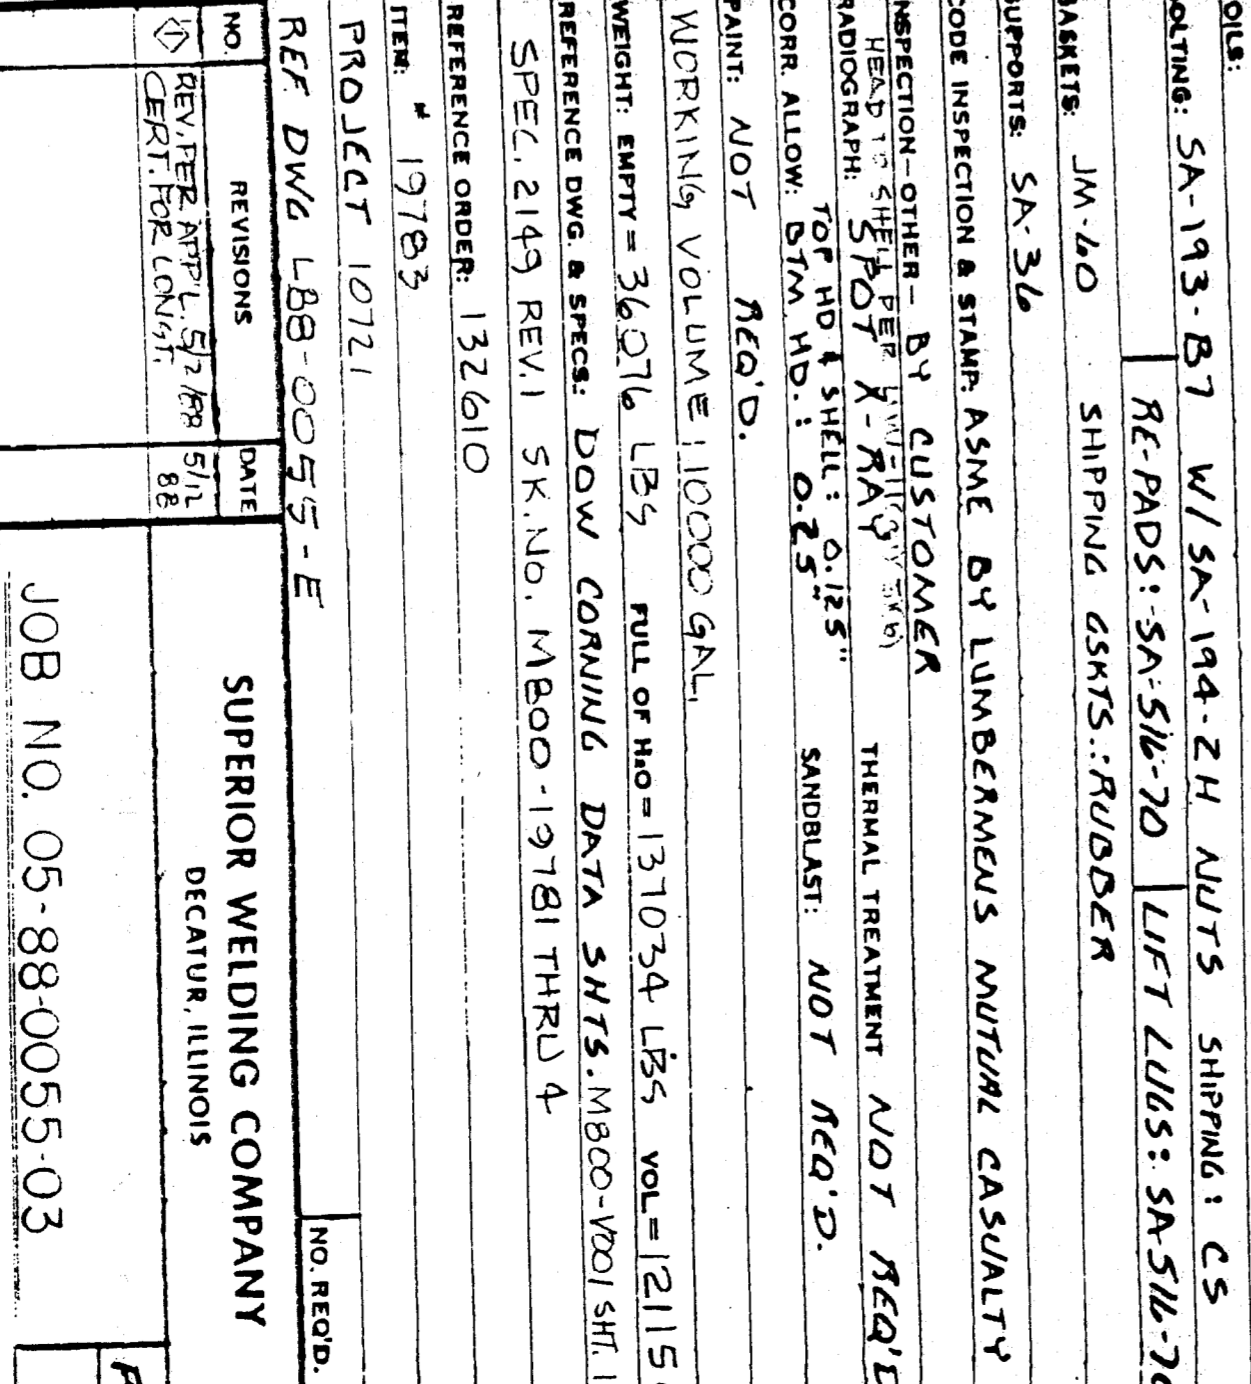 OILS:
OLTING: SA-193-B7 W/SA-194-2H NUTS SHIPPING: CS
RE-PADS: SA-516-70 LIFT LUGS: SA516-70
ASKETS: JM-60 SHIPPING GSKTS.: RUBBER
SUPPORTS: SA-36
CODE INSPECTION & STAMP: ASME BY LUMBERMENS MUTUAL CASUALTY
NSPECTION-OTHER- BY CUSTOMER
HEAD TO SHELL PER
RADIOGRAPH: SPOT X-RAY THERMAL TREATMENT NOT REQ'D
TOP HD & SHELL: 0.125"
CORR. ALLOW: BTM. HD.: 0.25" SANDBLAST: NOT REQ'D.
PAINT: NOT REQ'D.
WORKING VOLUME: 10000 GAL.
WEIGHT: EMPTY = 36076 LBS FULL OF H2O = 137034 LBS VOL = 12115
REFERENCE DWG. & SPECS: DOW CORNING DATA SHTS. M800-V001 SHT. 1
SPEC. 2149 REV.1 SK.No. M800-19781 THRU 4
REFERENCE ORDER: 132610
ITEM: # 19783
PROJECT 10721
REF. DWG LB8-0055-E
NO. REQ'D.
NO. REVISIONS DATE
1 REV. PER APP'L. 5/2/88 5/12
CERT. FOR CONST. 88
SUPERIOR WELDING COMPANY
DECATUR, ILLINOIS
JOB NO. 05-88-0055-03